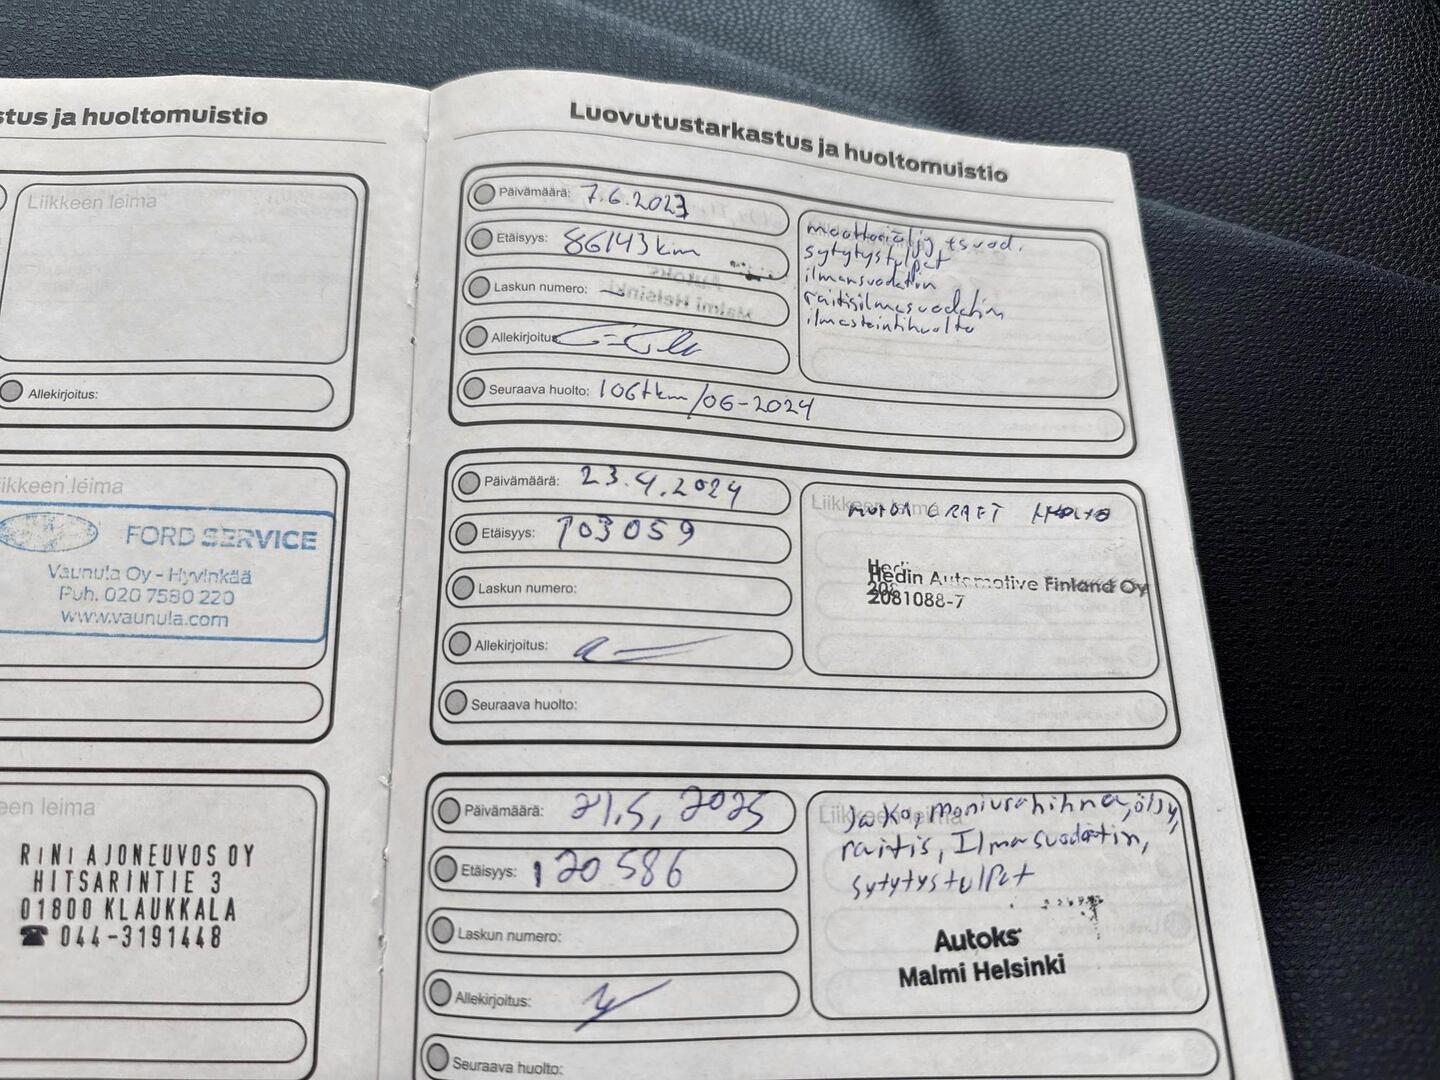 stus ja huoltomuistio
Liikkeen leima
Allekirjoitus:
iikkeen leima
FORD SERVICE
Vaunula Oy - Hyvinkää
Puh. 020 7580 220
www.vaunula.com
een leima
RINI AJONEUVOS OY
HITSARINTIE 3
01800 KLAUKKALA
☎ 044-3191448
Luovutustarkastus ja huoltomuistio
Päivämäärä: 7.6.2023
Etäisyys: 86143km
Laskun numero: -
Allekirjoitus:
Seuraava huolto: 106tkm/06-2024
moottoriöljy + suod.
sytytystulpat
ilmansuodatin
raitisilmasuodatin
ilmastointihuolto
Päivämäärä: 23.4.2024
Etäisyys: 103059
Laskun numero:
Allekirjoitus:
Seuraava huolto:
Liikkeen leima
HUOLTO
Hedin Automotive Finland Oy
2081088-7
Päivämäärä: 21.5.2025
Etäisyys: 120586
Laskun numero:
Allekirjoitus:
Seuraava huolto:
Liikkeen leima
Jako, moniurahihna, öljy,
raitis, Ilmasuodatin,
sytytystulpat
Autoks
Malmi Helsinki